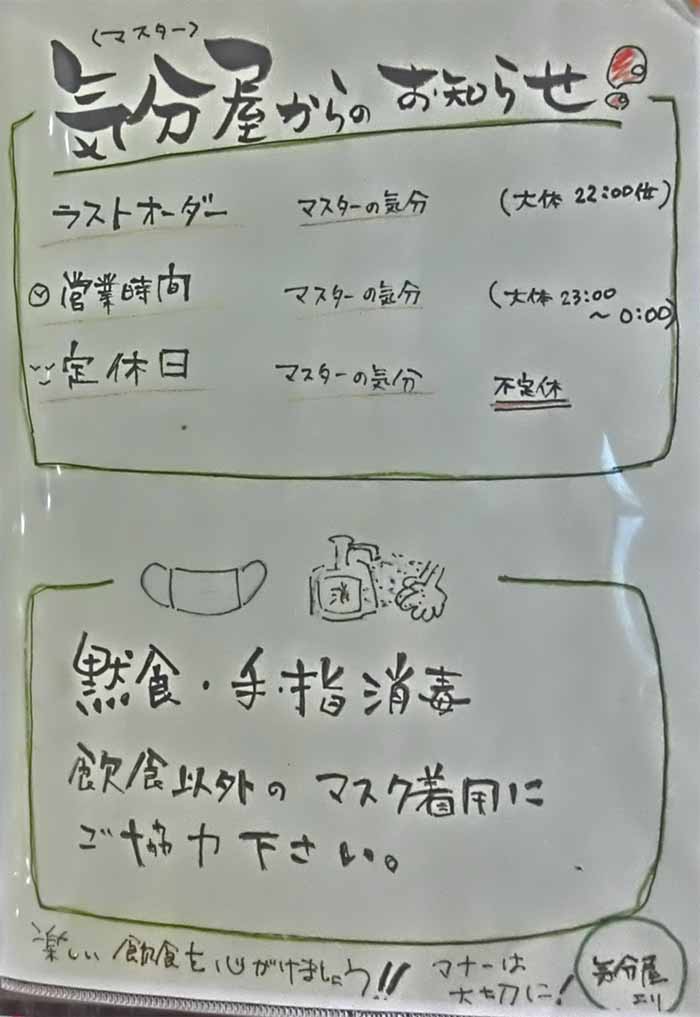 (マスター)
気分屋からのお知らせ!
ラストオーダー マスターの気分 (大体 22:00位)
営業時間 マスターの気分 (大体 23:00
〜0:00)
定休日 マスターの気分 不定休
消
黙食・手・指消毒
飲食以外の マスク着用に
ご協力下さい。
楽しい飲食を心がけましょう!! マナーは
大切に!
気分屋
ヨリ